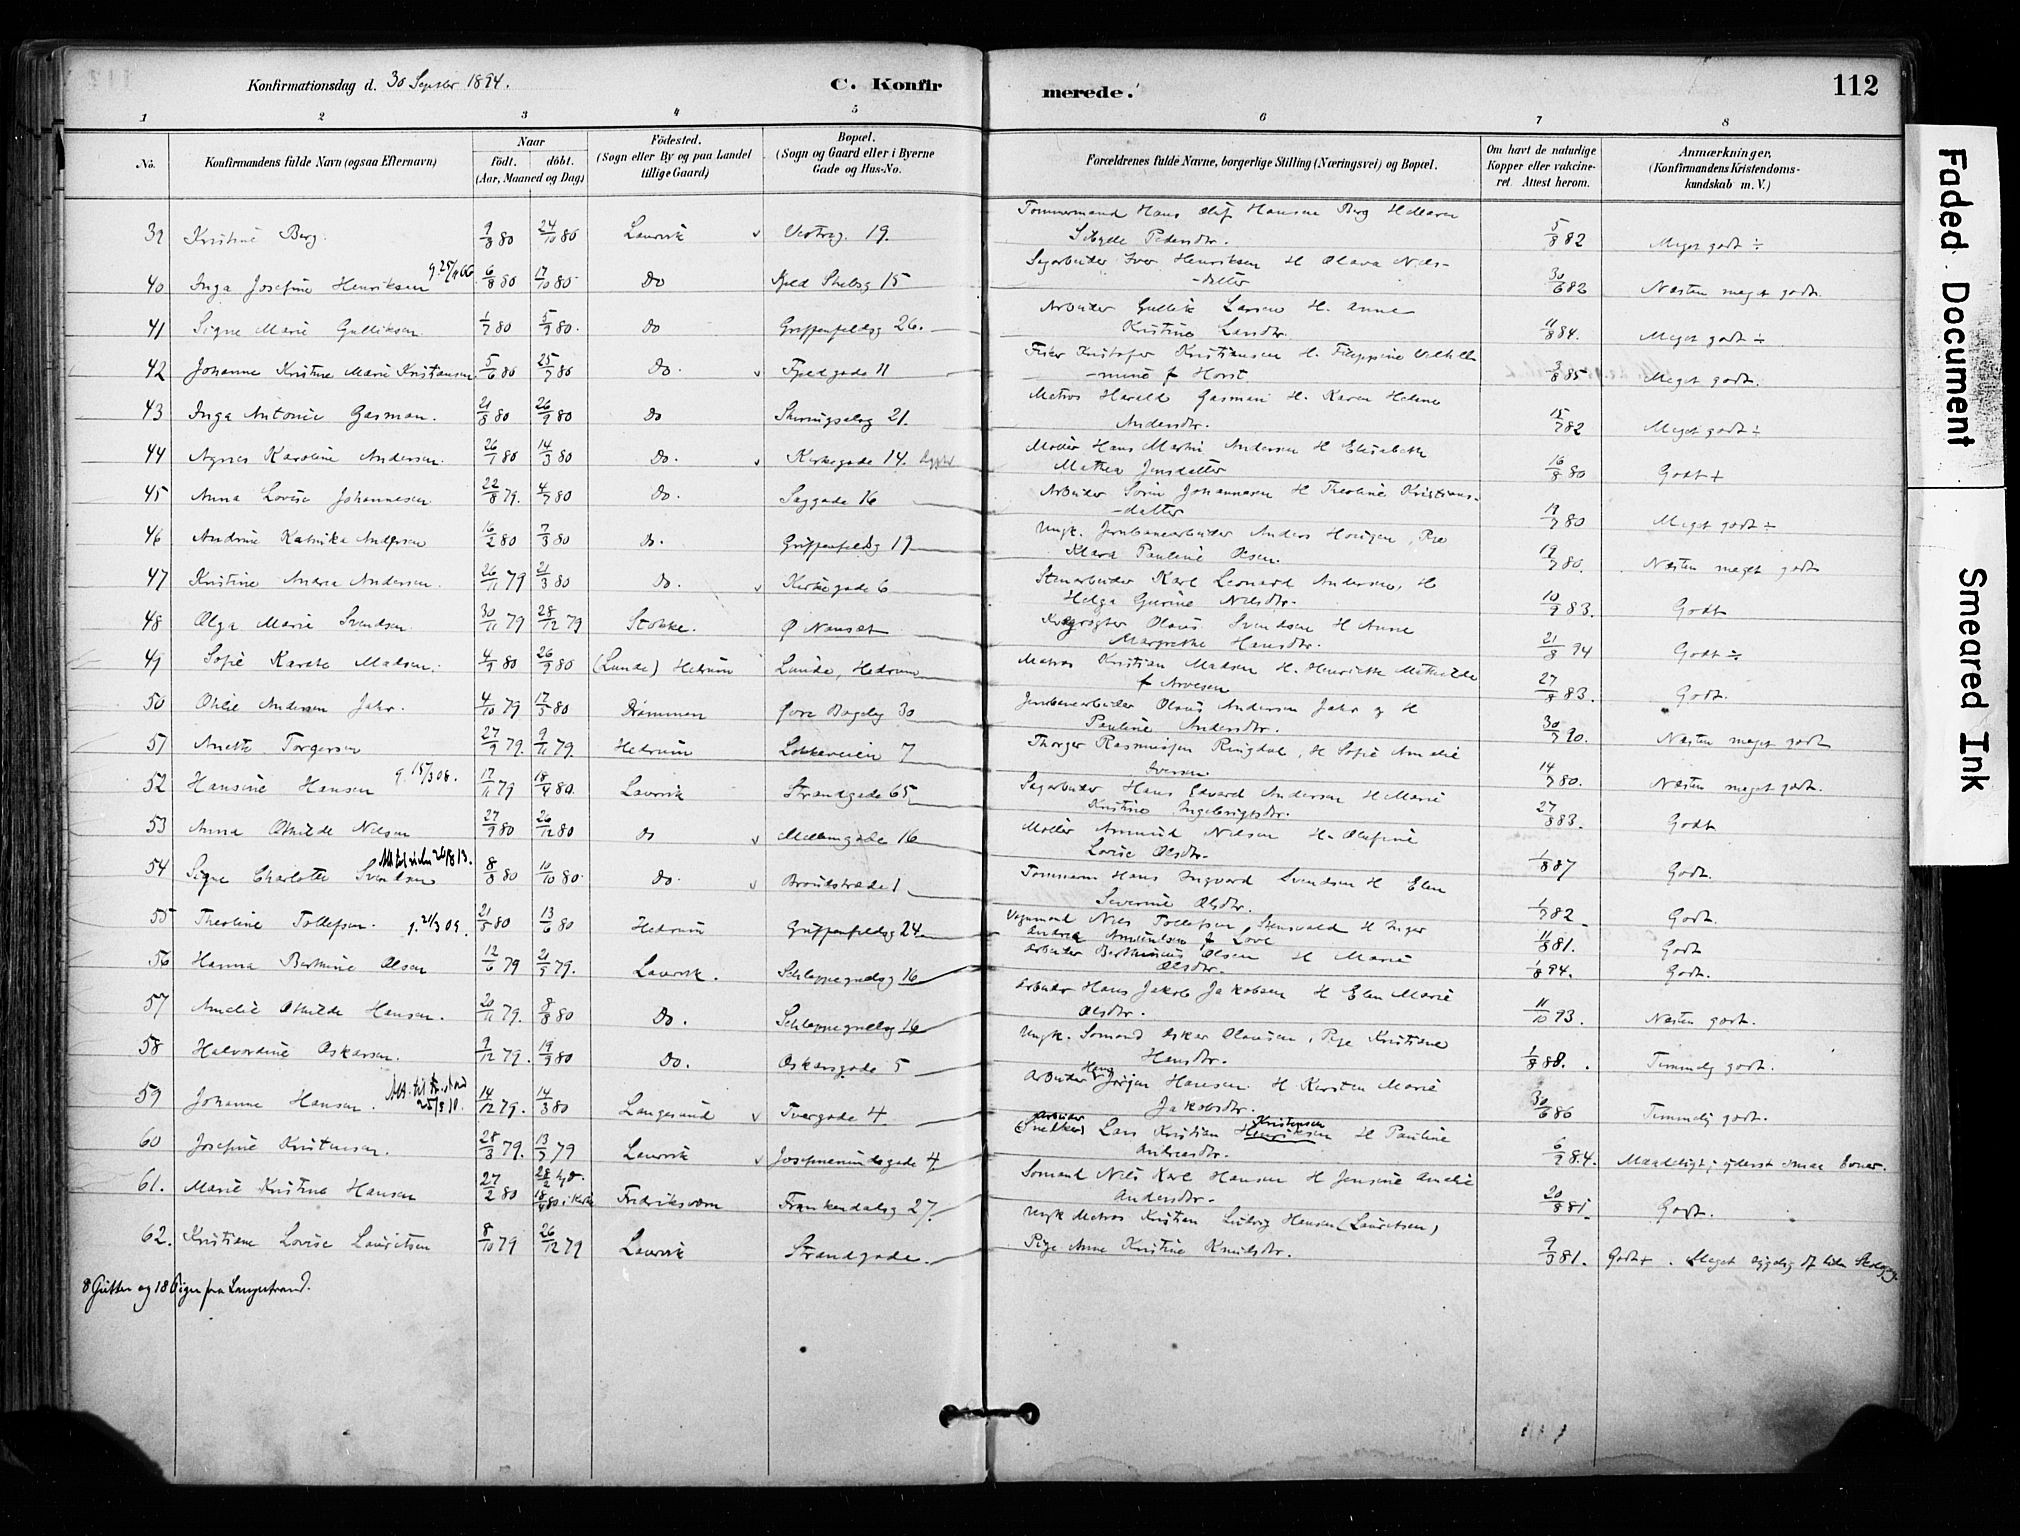 Konfirmationsdag d. 30 Septbr 1894.
C. Konfirmerede.
112
1 2 3 4 5 6 7 8
No. Konfirmandens fulde Navn (ogsaa Efternavn) Naar födt. döbt. (Aar, Maaned og Dag) Födested. (Sogn eller By og paa Landet tillige Gaard) Bopæl. (Sogn og Gaard eller i Byerne Gade og Hus-No. Forældrenes fulde Navne, borgerlige Stilling (Næringsvei) og Bopæl. Om havt de naturlige Kopper eller vakcineret. Attest herom. Anmærkninger, (Konfirmandens Kristendomskundskab m. V.)
39 Kristine Berg. 9/8 80 24/10 80 Laurvik v Vestreg. 19. Tømmermand Hans Olaf Hansen Berg H Maren
Pedersdtr. 5/8 82 Meget godt ÷
40 Inga Josefine Henriksen 6/8 80 17/10 80 Do 15 Sagarbeider Iver Henriksen H Olava Nils-
-datter 30/6 82 Næsten meget godt.
41 Signe Marie Gulliksen 1/7 80 5/9 80. Do Griffenfeldsg 26. Arbeider Gullik Larsen H. Anne
Kristine Larsdtr. 11/8 84. Meget godt ÷
42 Johanne Kristine Marie Kristiansen 5/6 80 25/7 80 Do. v Fjeldgade 11 Kristofer Kristiansen H. Filippine Vilhel-
-mine f Horst. 3/8 85 Meget godt.
43 Inga Antonie Gasman. 21/8 80 26/9 80 Do Skiringsalsg 21. Matros Harald Gasman H. Karen Helene
Andersdtr. 15/7 82 Meget godt ÷
44 Agnes Karoline Andersen. 26/1 80 14/3 80 Do. v Kirkegade 14. Møller Hans Martin Andersen H Elisabeth
Mathea Jensdatter 16/8 80 Godt +
45 Anna Lovise Johannesen 22/8 79. 4/7 80 Do. Saggade 16 Arbeider Søren Johannesen H Theoline Kristians-
-datter 17/7 80 Meget godt ÷
46 Andrine Katrika Andersen 16/2 80 7/3 80 Do. Griffenfeldsg 19 Ungk. Jernbanearbeider Anders Hougen, Pige
Klara Pauline Olsen. 19/7 80. Næsten meget godt
47 Kristine Andrea Andersen. 26/11 79 21/3 80 Do. v Kirkegade 6 Stenarbeider Karl Leonard Andersen, H
Helga Gurine Nilsdtr. 10/9 83. Godt
48 Olga Marie Svendsen 30/11 79 28/12 79 Stokke. Ø Nanset Kvægrøgter Olaus Svendsen H Anne
Margrethe Hansdtr. 21/8 94 Godt ÷
49 Sofie Karete Madsen. 4/9 80 26/9 80 (Lunde) Hedrum Lunde, Hedrum Matros Kristian Madsen H. Henriette Mathilde
f Arvesen 27/8 83. Godt.
50 Othilie Andersen Jahr. 4/10 79 17/5 80 Drammen Øvre Bøgelsg 30 Jernbanearbeider Olaus Andersen Jahr g H
Pauline Andersdtr. 30/7 90. Næsten meget godt
51 Anette Torgersen 27/9 79. 9/11 79. Hedrum Løkkeveien 7 Thorger Rasmussen Ringdal, H Sofie Amalie
Iversen 14/7 80. Næsten meget godt.
52 Hansine Hansen g. 15/3 06. 17/11 79 18/4 80. Laurvik Strandgade 65 Sagarbeider Hans Edvard Andersen H Marie
Kristine Ingebrigtsdtr. 27/8 83. Godt
53 Anna Othilde Nilsen 27/9 80 26/12 80 Do v Mellemgade 16 Møller Ammund Nilsen H. Olefine
Lovise Olsdtr. 1/8 87 Godt.
54 Signe Charlotte Svendsen 8/8 80 10/10 80. Do. v Brandstræde 1 Tømmerm Hans Ingvard Svendsen H Elen
Severine Olsdtr. 1/7 82 Godt.
55 Theoline Tollefsen. g. 21/3 09. 21/5 80 13/6 80 Hedrum Griffenfeldsg 24 Vognmand Nils Tollefsen Stensvald H Inger
Andrea Amundsen f Love 11/8 81. Godt
56 Hanna Bertine Olsen 12/6 79 21/9 79. Laurvik. Schleppegrelsg 16 Arbeider Berthinius Olsen H Marie
Olsdtr. 1/8 94. Godt.
57 Amalie Othilde Hansen. 20/11 79. 8/8 80 Do. Schleppegrelsg 16 Arbeider Hans Jakob Jakobsen H Elen Marie
Olsdtr. 11/10 93. Næsten godt.
58 Halvordine Oskarsen. 9/12 79. 19/9 80 Do. Oskarsgade 5 Ungk. Sømand Oskar Olausen, Pige Kristiane
Hansdtr. 1/8 88. Temmelig godt.
59 Johanne Hansen. 25/3 10. 14/12 79. 14/3 80 Langesund v Tvergade 4 Arbeider Hans Jørgen Hansen. H Karsten Marie
Jakobsdtr. 30/6 86 Temmelig godt.
60 Josefine Kristensen. 28/3 79. 13/7 79 Laurvik v Josefinelundsgade 4 Arbeider (Snedker) Lars Kristian Henriksen Kristensen H Pauline
Andreasdtr. 6/9 84. Maadeligt; yderst smaa Evner.
61. Marie Kristine Hansen 27/2 80 28/2 hjd. 18/4 80 i Kirk Fredriksværn Frankendalsg 27. Sømand Nils Karl Hansen H Jensine Amalie
Andersdtr. 20/8 81. Godt.
62. Kristiane Lovise Lauritsen 8/10 79 26/12 79 Laurvik Strandgade. Ungk Matros Kristian Ludvig Hansen (Lauritsen)
Pige Anne Kristine Knudsdtr. 9/3 81. Godt +. Meget sygelig
8 Gutter og 18 Piger fra Langestrand.
Faded Document
Smeared Ink